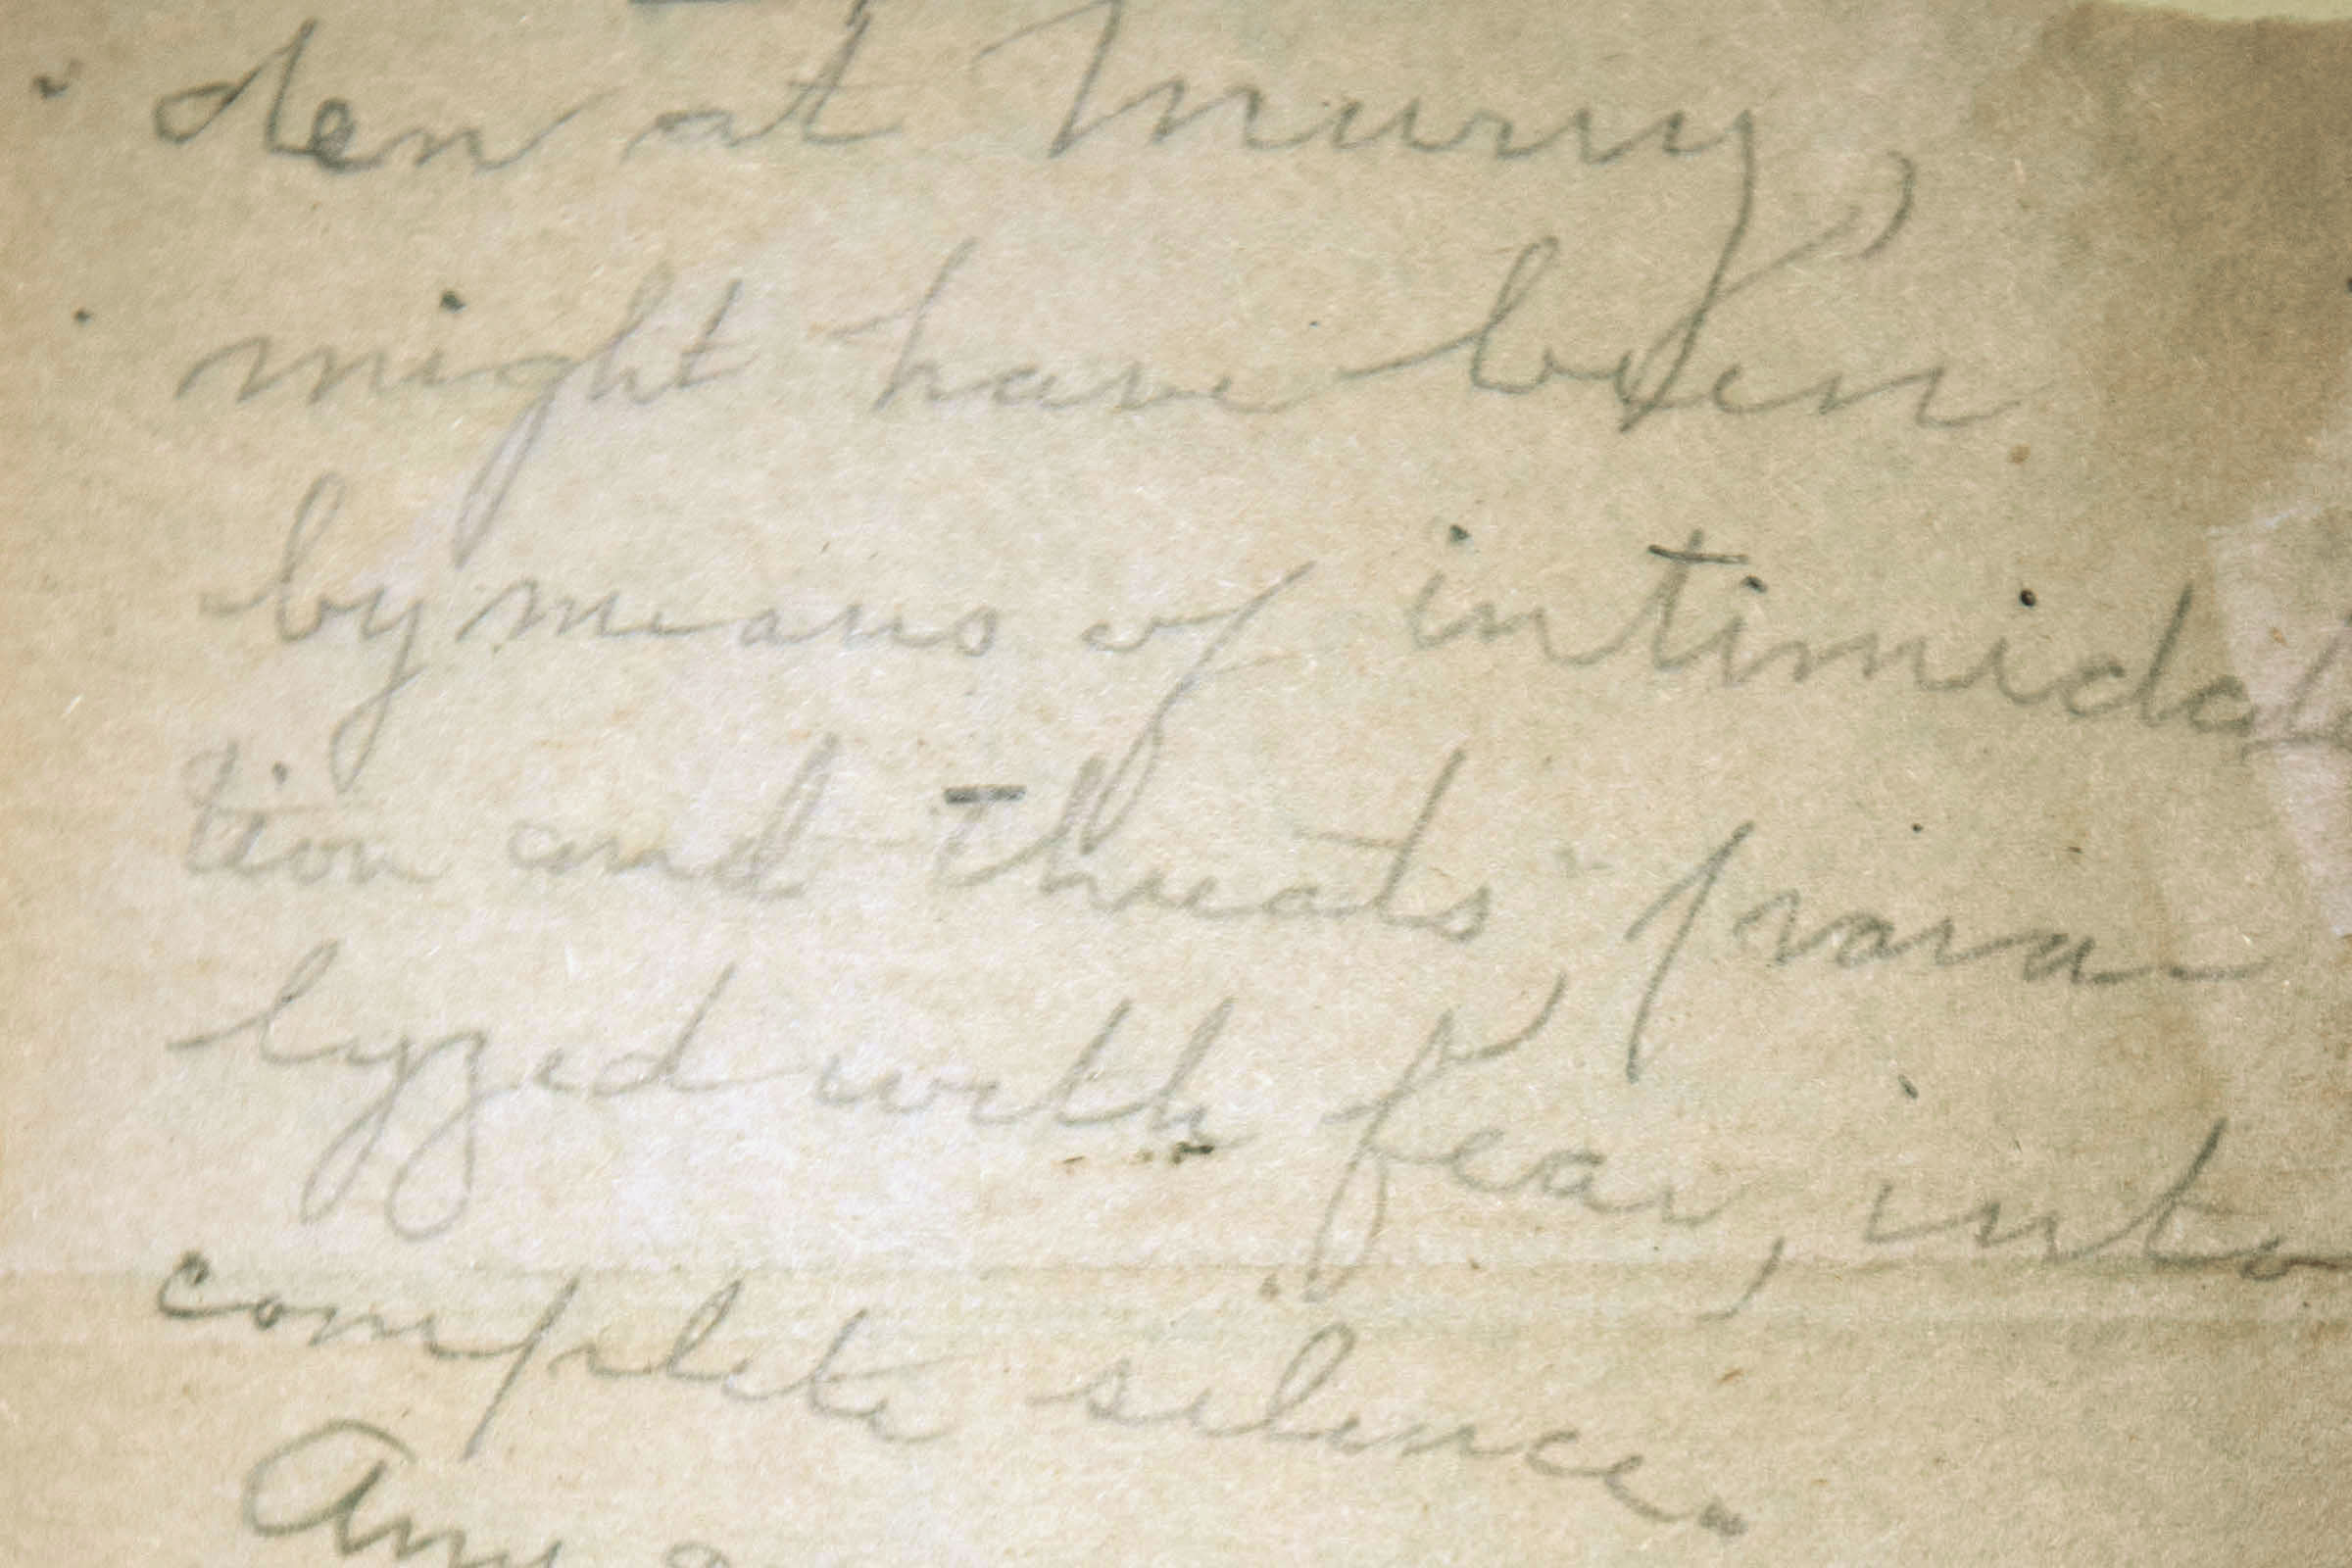 den at Murry,
might have been
by means of intimida
tion and threats, para
lyzed with fear, into
complete silence.
Any